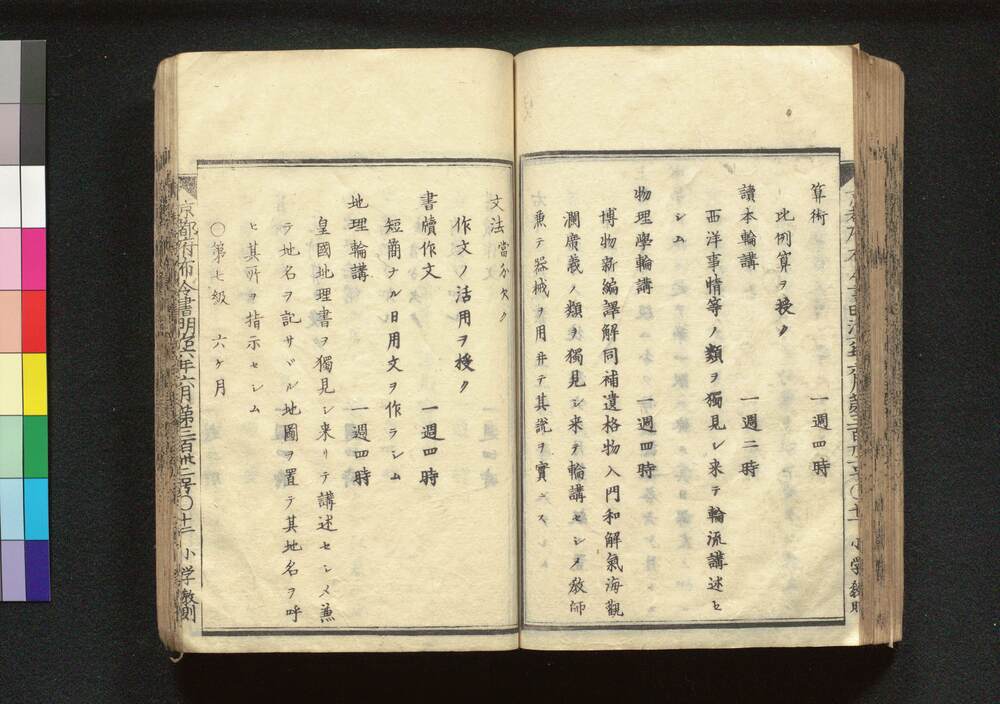 算術 一週四時
比例算ヲ授ク
讀本輪講 一週二時
西洋事情等ノ類ヲ獨見シ来テ輪流講述セ
シム
物理學輪講 一週四時
博物新編譯解同補遺格物入門和解氣海觀
瀾廣義ノ類ヲ獨見シ来テ輪講セシメ教師
兼テ器械ヲ用井テ其説ヲ實ニス
文法當分欠ク
作文ノ活用ヲ授ク
書牘作文 一週四時
短簡ナル日用文ヲ作ラシム
地理輪講 一週四時
皇國地理書ヲ獨見シ来リテ講述セシメ兼
テ地名ヲ記サヾル地圖ヲ置テ其地名ヲ呼
ヒ其所ヲ指示セシム
〇第七級 六ケ月
京都府布令書明治六年六月第三百卅二号〇十二 小学教則